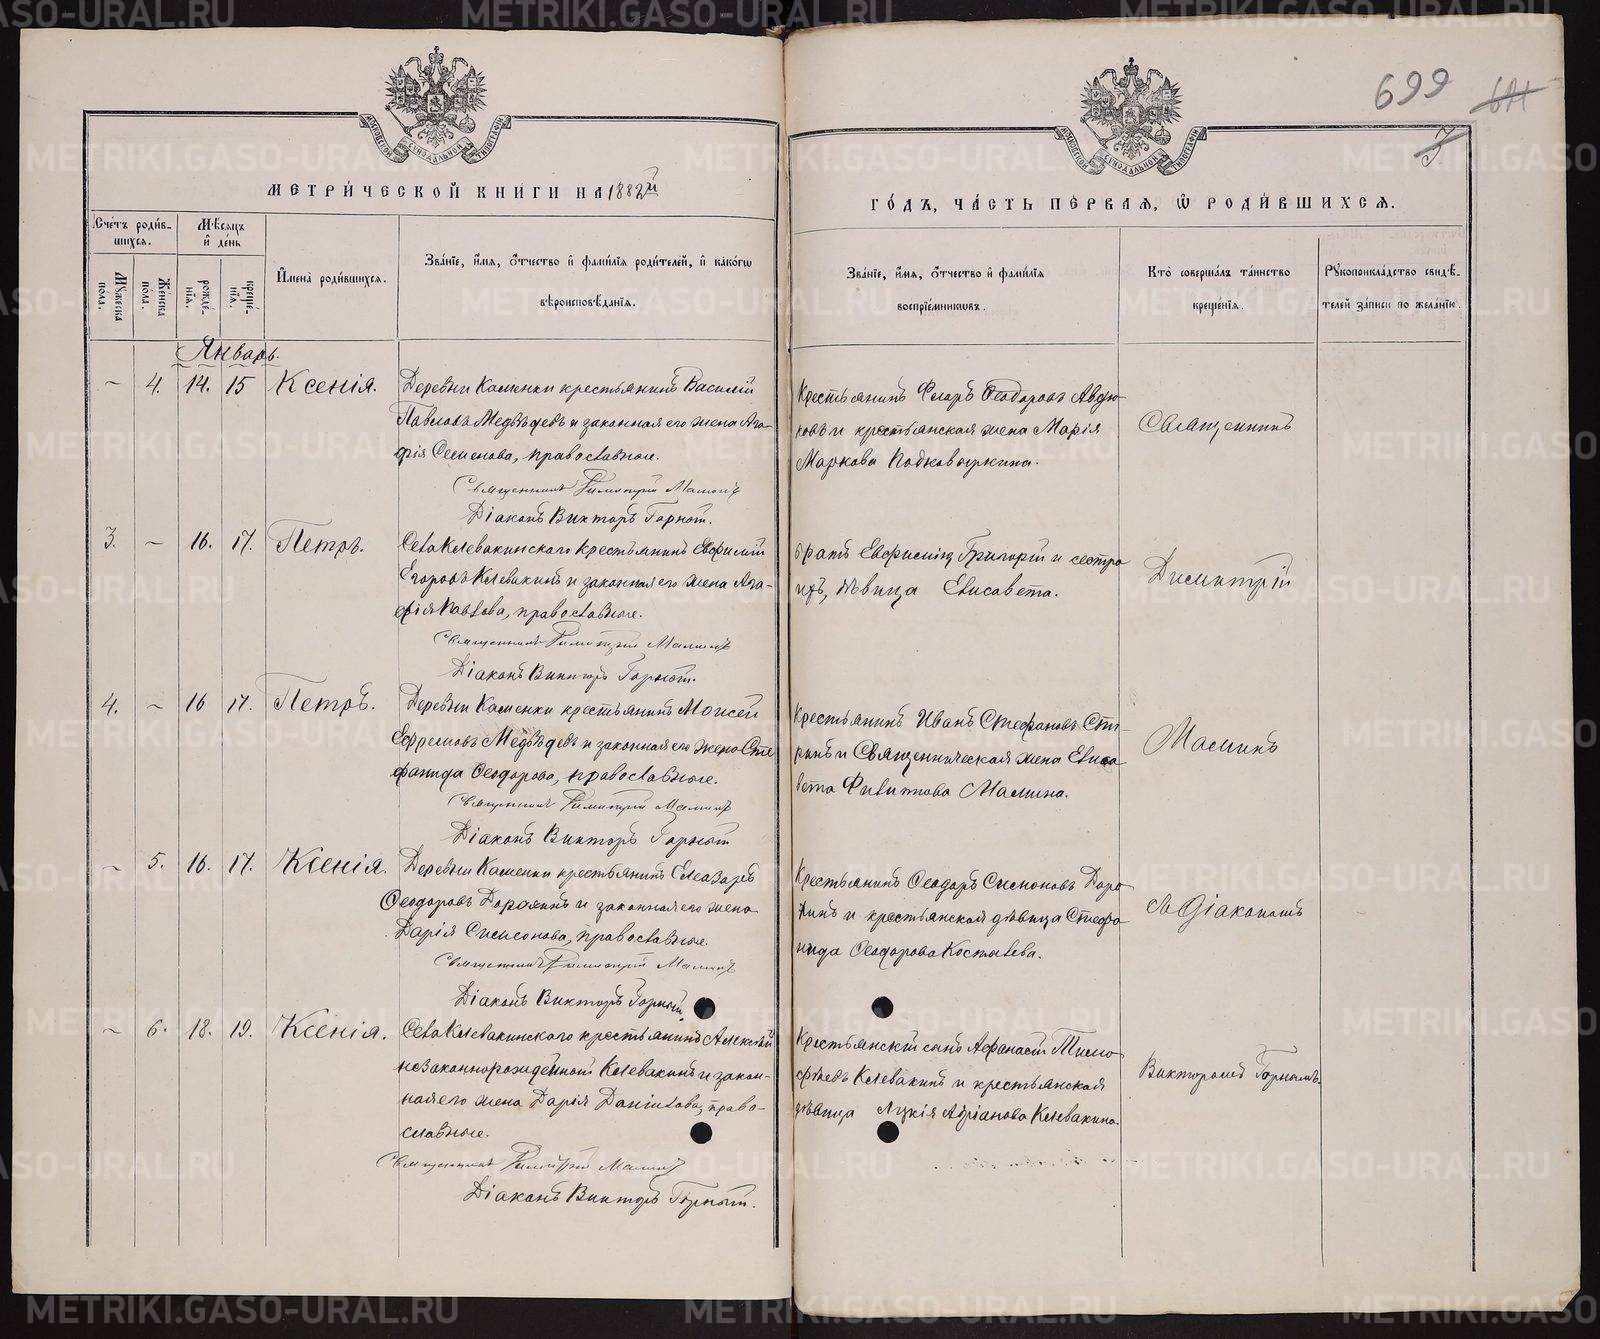 METRIKI.GASO-URAL.RU
699
611
3
МОСКОВСКОЙ СѴНОДАЛЬНОЙ ТИПОГРАФІИ
МОСКОВСКОЙ СѴНОДАЛЬНОЙ ТИПОГРАФІИ
МЕТРИ́ЧЕСКОЙ КНИГИ НА 1882й
ГО́ДЪ, ЧА́СТЬ ПЕ́РВАЯ, Ѡ РОДИ́ВШИХСЯ.
Сче́тъ роди́в-
шихся.
Мѣ́сяцъ
и҆ де́нь
Му́жеска
по́ла.
Же́нска
по́ла.
рожде́-
нїя.
креще́-
нїя.
И҆мена̀ роди́вшихся.
Зва́нїе, и҆́мя, о҆́тчество и҆ фами́лїя роди́телей, и҆ како́гѡ
вѣроисповѣ́данїя.
Зва́нїе, и҆́мя, о҆́тчество и҆ фами́лїя
воспрїе́мникѡвъ.
Кто̀ соверша́лъ та́инство
креще́нїя.
Рꙋкоприкла́дство свидѣ́-
телей за́писи по жела́нїю.
Январь.
– 4. 14. 15 Ксенія.
Деревни Каменки крестьянинъ Василій
Павловъ Медвѣдевъ и законная его жена Ага-
фія Семенова, православные.
Священникъ Димитрій Маминъ
Діаконъ Викторъ Горный.
Крестьянинъ Флоръ Ѳеодоровъ Авдю-
ковъ и крестьянская жена Марія
Маркова Подковыркина.
Священникъ
3. – 16. 17. Петръ.
Села Клевакинскаго крестьянинъ Евфимій
Егоровъ Клевакинъ и законная его жена Ага-
фія Павлова, православные.
Священникъ Димитрій Маминъ
Діаконъ Викторъ Горный.
братъ Евфимія Григорій и сестра
ихъ, дѣвица Елисавета.
Димитрій
4. – 16 17. Петръ.
Деревни Каменки крестьянинъ Моисей
Ефремовъ Медвѣдевъ и законная его жена Сте
фанида Ѳеодорова, православные.
Священникъ Димитрій Маминъ
Діаконъ Викторъ Горный
Крестьянинъ Иванъ Стефановъ
и Священническая жена Елиса-
вета Мамина.
Маминъ
– 5. 16. 17. Ксенія.
Деревни Каменки крестьянинъ Елеазаръ
Ѳеодоровъ Дорохинъ и законная его жена
Дарія Симеонова, православные.
Священникъ Димитрій Маминъ
Діаконъ Викторъ Горный.
Крестьянинъ Ѳеодоръ Симоновъ Доро-
хинъ и крестьянская дѣвица Стефа-
нида Ѳеодорова Костылева.
съ Діакономъ
– 6. 18. 19. Ксенія.
Села Клевакинскаго крестьянинъ Алексѣй
незаконнорожденный Клевакинъ и закон-
ная его жена Дарія Даніилова, право-
славные.
Священникъ Димитрій Маминъ
Діаконъ Викторъ Горный.
Крестьянскій сынъ Афанасій Тимо-
фѣевъ Клевакинъ и крестьянская
дѣвица Лукія Адріанова Клевакина.
Викторомъ Горнымъ.